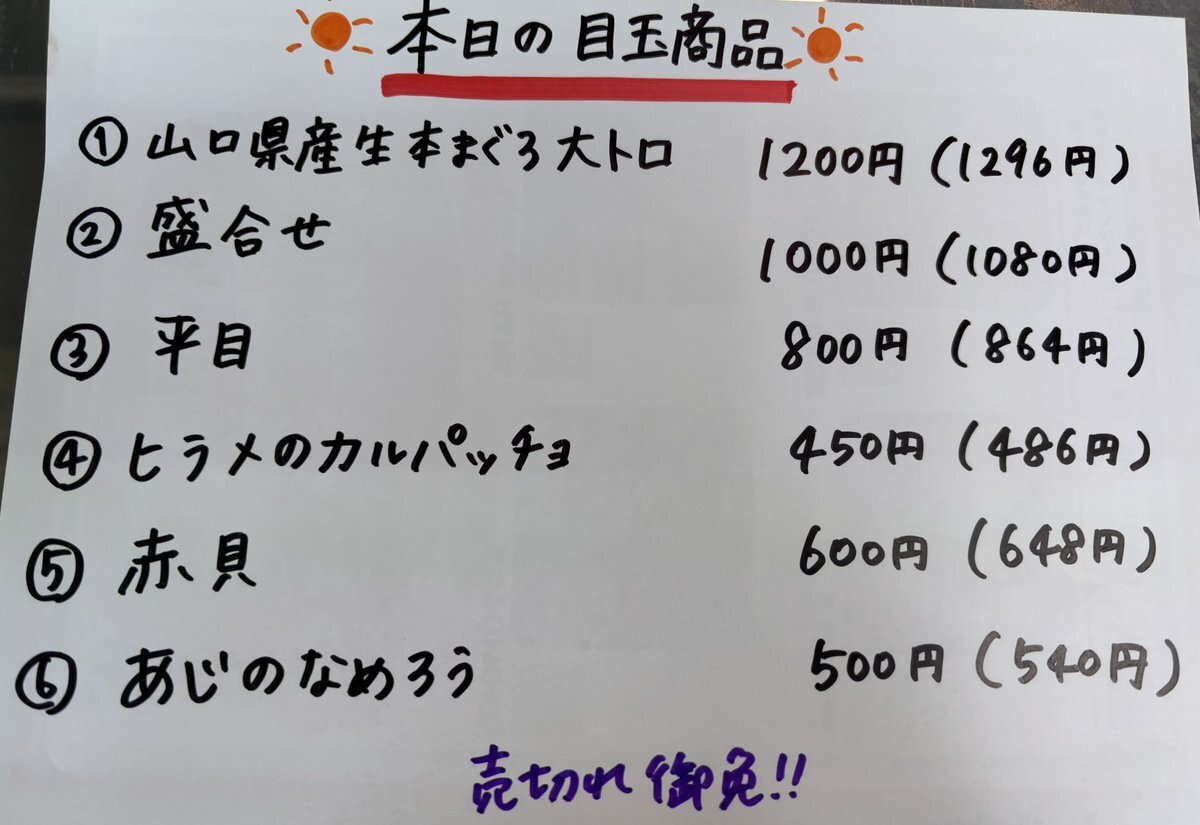 本日の目玉商品
① 山口県産生本まぐろ大トロ 1200円(1296円)
② 盛合せ 1000円(1080円)
③ 平目 800円(864円)
④ ヒラメのカルパッチョ 450円(486円)
⑤ 赤貝 600円(648円)
⑥ あじのなめろう 500円(540円)
売切れ御免!!